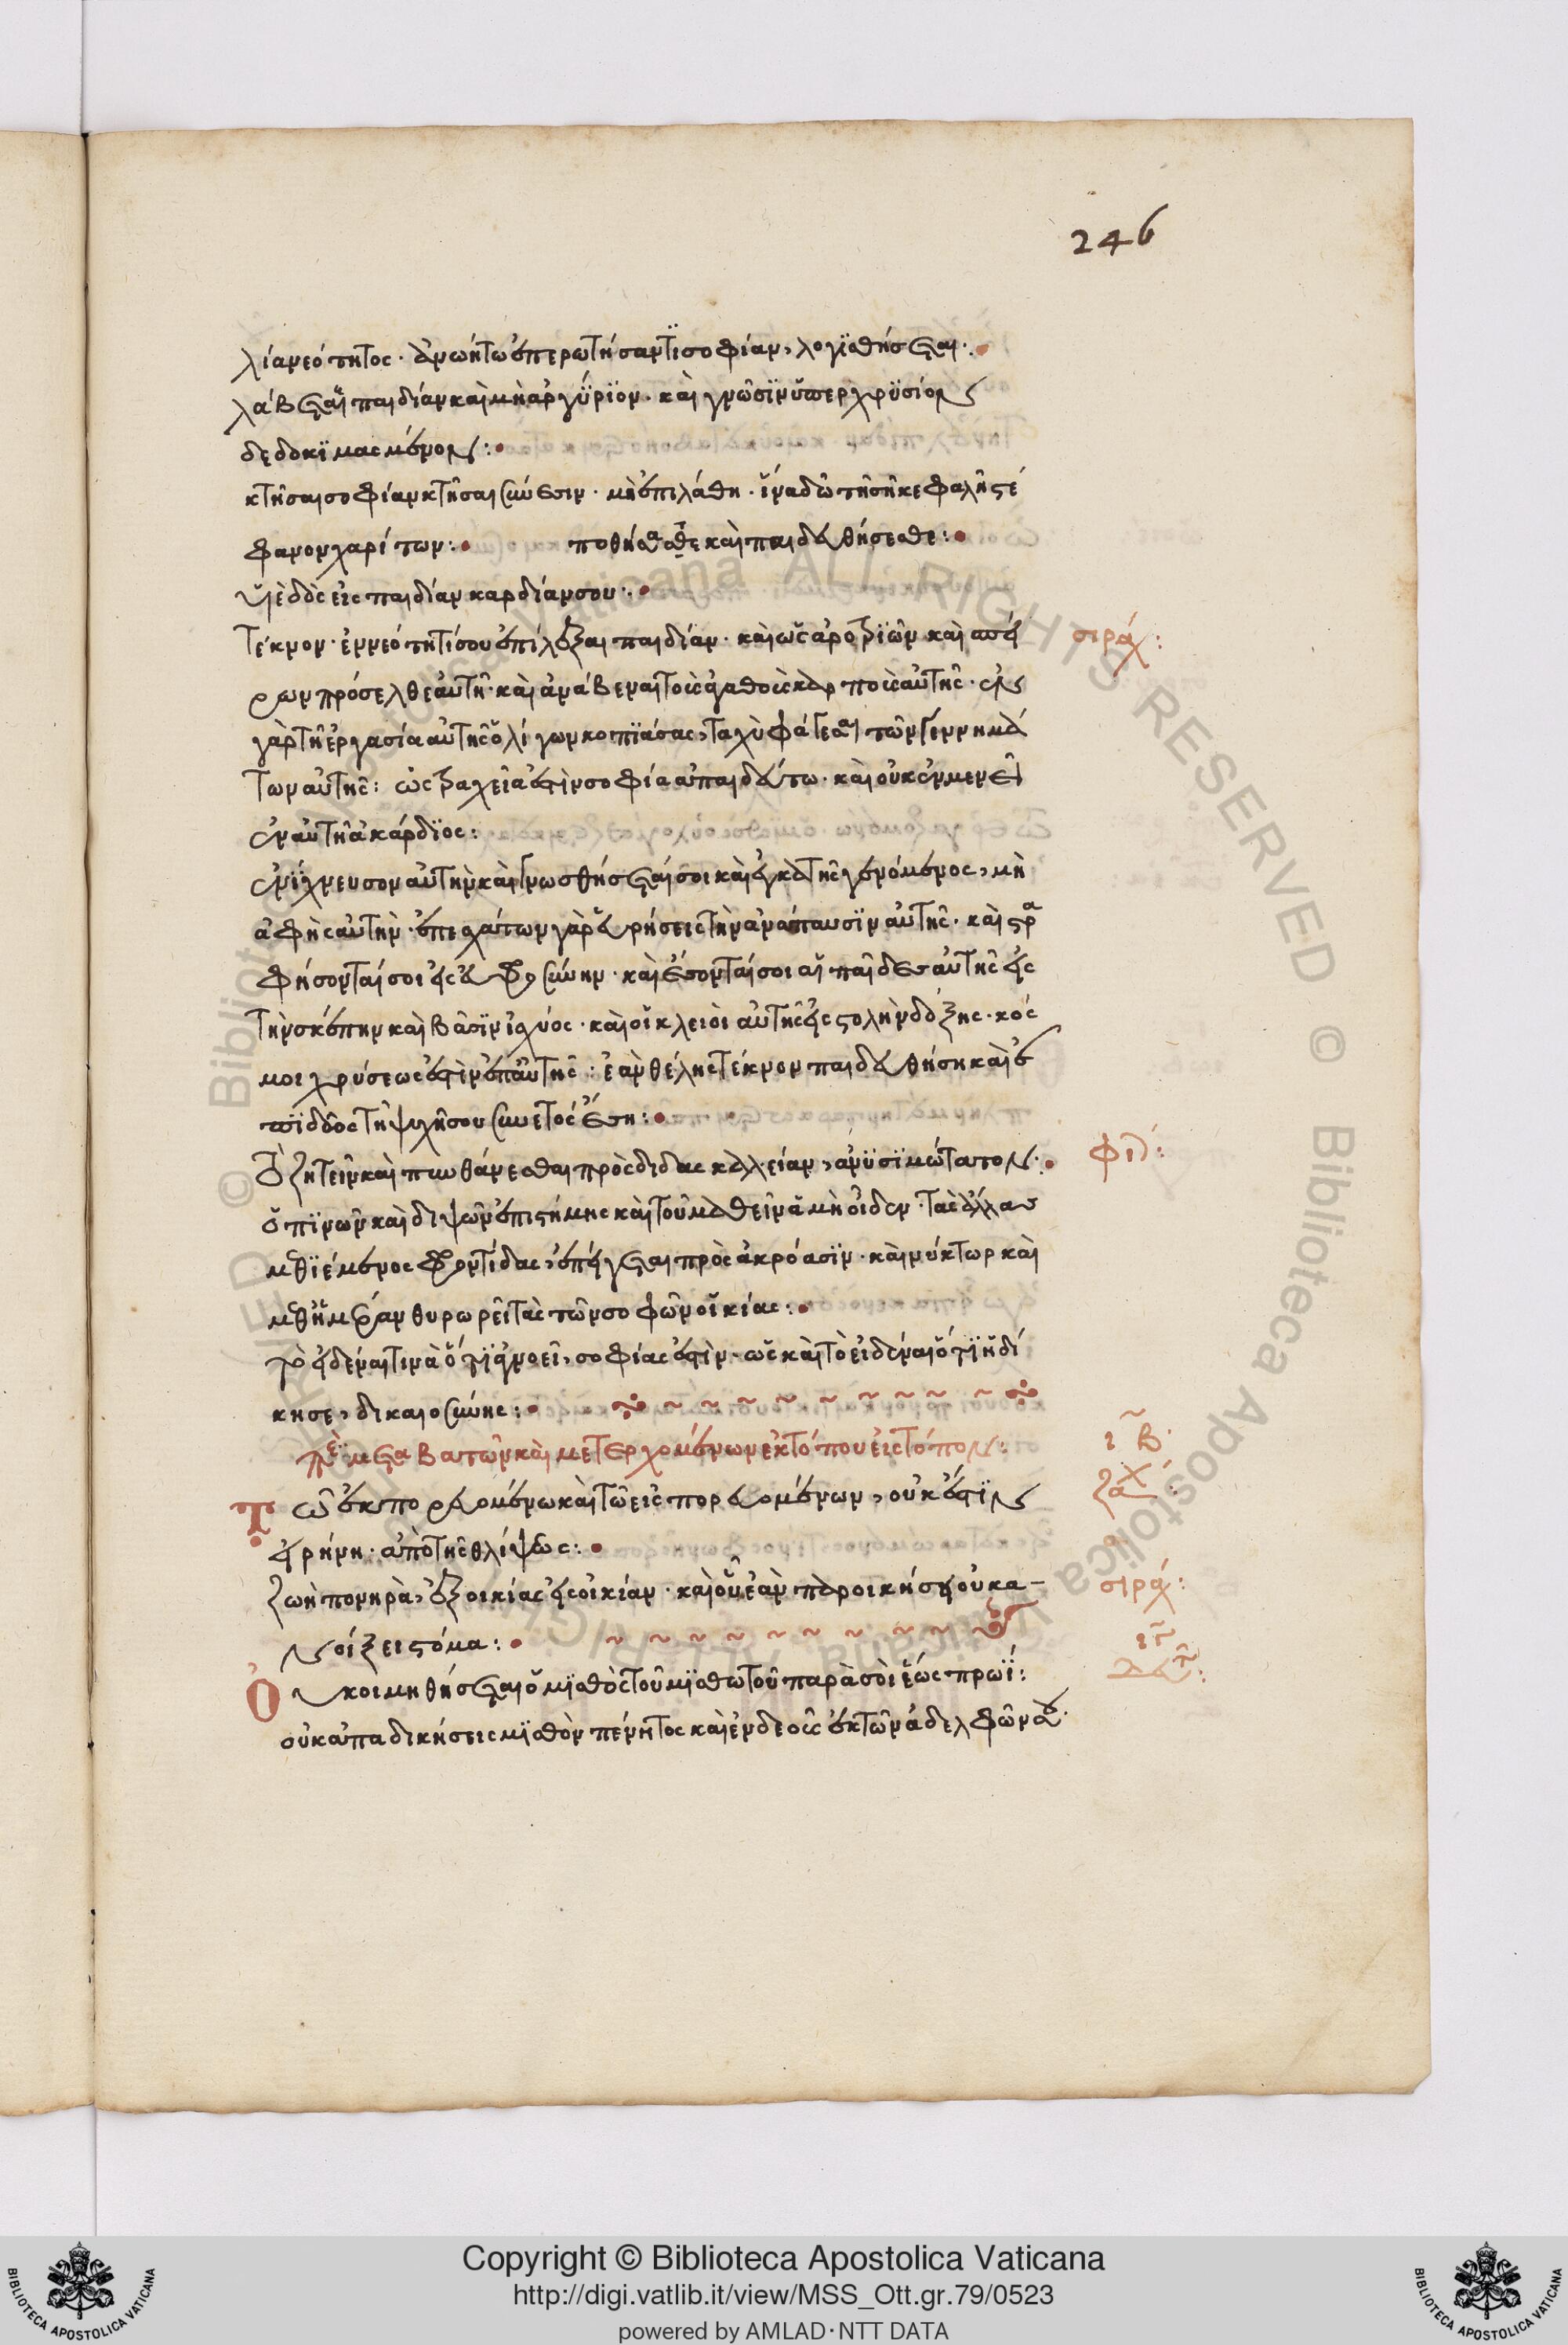 246
λίαν εότητος · ἀνωήτω ἐπερωτήσαντϊ σοφίαν, λογϊσθήσεται ·
λάβεται παιδίαν καὶ μὴ ἀργύριον · καὶ γνῶσϊν ὑπὲρ χρϋσίον
δεδοκϊμασμένον :
κτῆσαι σοφίαν κτῆσαι σύνεσιν · μὴ ἐπιλάθη · ἵνα δῶ τῆ σῆ κεφαλῆ στέ
φανον χαρίτων : ποθήσατε καὶ παιδευθήσεσθε :
υἱὲ δὸς εἰς παιδίαν καρδίαν σου :
τέκνον · ἐν νεότητί σου ἐπίλεξαι παιδίαν · καὶ ὡς ἀροτριῶν καὶ σπεί
ρων πρόσελθε αὐτῆ · καὶ ἀνάβεναι τοῖς ἀγαθοῖς καρποῖς αὐτῆς · ἐν
γὰρ τῆ ἐργασία αὐτῆς ὀλίγων κοπϊάσας, ταχὺ φάγεσαι τῶν γεννημά
των αὐτῆς : ὡς τραχεῖα ἐστὶν σοφία ἀπαιδεύτω · καὶ οὐκ ἐνμενεῖ
ἐν αὐτῆ ἀκάρδϊος :
ἐνίχνευσον αὐτὴν καὶ γνωσθήσεταί σοι καὶ ἐγκρατὴς γενόμενος, μὴ
ἀφῆς αὐτὴν · ἐπεσχάτων γὰρ εὑρήσεις τὴν ἀνάπαυσϊν αὐτῆς · καὶ στρα
φήσονταί σοι εἰς εὐφροσύνην · καὶ ἔσονταί σοι αἱ παῖδες αὐτῆς εἰς
τὴν σκέπην καὶ βάσϊν ἰσχύος · καὶ οἱ κλειοὶ αὐτῆς εἰς στολὴν δόξης · κόσ
μοι χρύσεως ἐστὶν ἐπ αὐτῆς : ἐὰν θέλης τέκνον παιδευθήση καὶ ἐ
πϊδὸς τῆ ψυχῆ σου συνετὸς ἔση :
Τὸ ζητεῖν καὶ πυνθάνεσθαι πρὸς διδασκαλλείαν, ἀνϋσϊμώτατον :
ὁ πϊνῶν καὶ διψῶν ἐπιστήμης καὶ τοῦ μαθεῖν ἃ μὴ οἶδεν · τὰς ἄλλας
μεθϊέμενος φροντίδας, ἐπείγεται πρὸς ἀκρόασϊν · καὶ νύκτωρ καὶ
μεθἡμέραν θυρωρεῖ τὰς τῶν σοφῶν οἰκίας :
τὸ εἰδέναι τινὰ ὅτϊ ἀγνοεῖ, σοφίας ἐστὶν · ὡς καὶ τὸ εἰδέναι ὅτϊ ἠδί
κησε, δικαιοσύνης :
Περὶ μεταβατῶν καὶ μετερχομένων ἐκ τόπου εἰς τόπον :
Τῶ ἐκπορευομένω καὶ τῶ εἰσπορευομένων, οὐκ ἔστϊν
εἰρήνη · ἀπὸ τῆς θλίψεως :
ζωὴ πονηρὰ, ἐξ οἰκίας εἰς οἰκίαν · καὶ οὗ ἐὰν παροικήσει οὐκ α-
νοίξει στόμα :
Οὐ κοιμηθήσεται ὁ μϊσθὸς τοῦ μϊσθωτοῦ παρὰ σοὶ ἕως πρωΐ :
οὐκ ἀπαδικήσεις μϊσθὸν πένητος καὶ ἐνδεοῦς ἐκ τῶν ἀδελφῶν σου ·
σιράχ :
φιλ :
ι Β
ζαχ :
σιράχ :
Copyright © Biblioteca Apostolica Vaticana
http://digi.vatlib.it/view/MSS_Ott.gr.79/0523
powered by AMLAD·NTT DATA